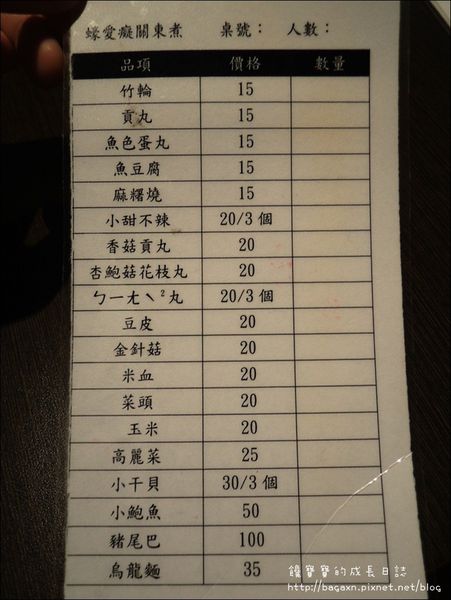 蠔愛癡關東煮 桌號： 人數：
品項 價格 數量
竹輪 15
貢丸 15
魚色蛋丸 15
魚豆腐 15
麻糬燒 15
小甜不辣 20/3 個
香菇貢丸 20
杏鮑菇花枝丸 20
ㄅㄧㄤˋ²丸 20/3 個
豆皮 20
金針菇 20
米血 20
菜頭 20
玉米 20
高麗菜 25
小干貝 30/3 個
小鮑魚 50
豬尾巴 100
烏龍麵 35
饞寶寶的成長日誌
http://bagaxn.pixnet.net/blog